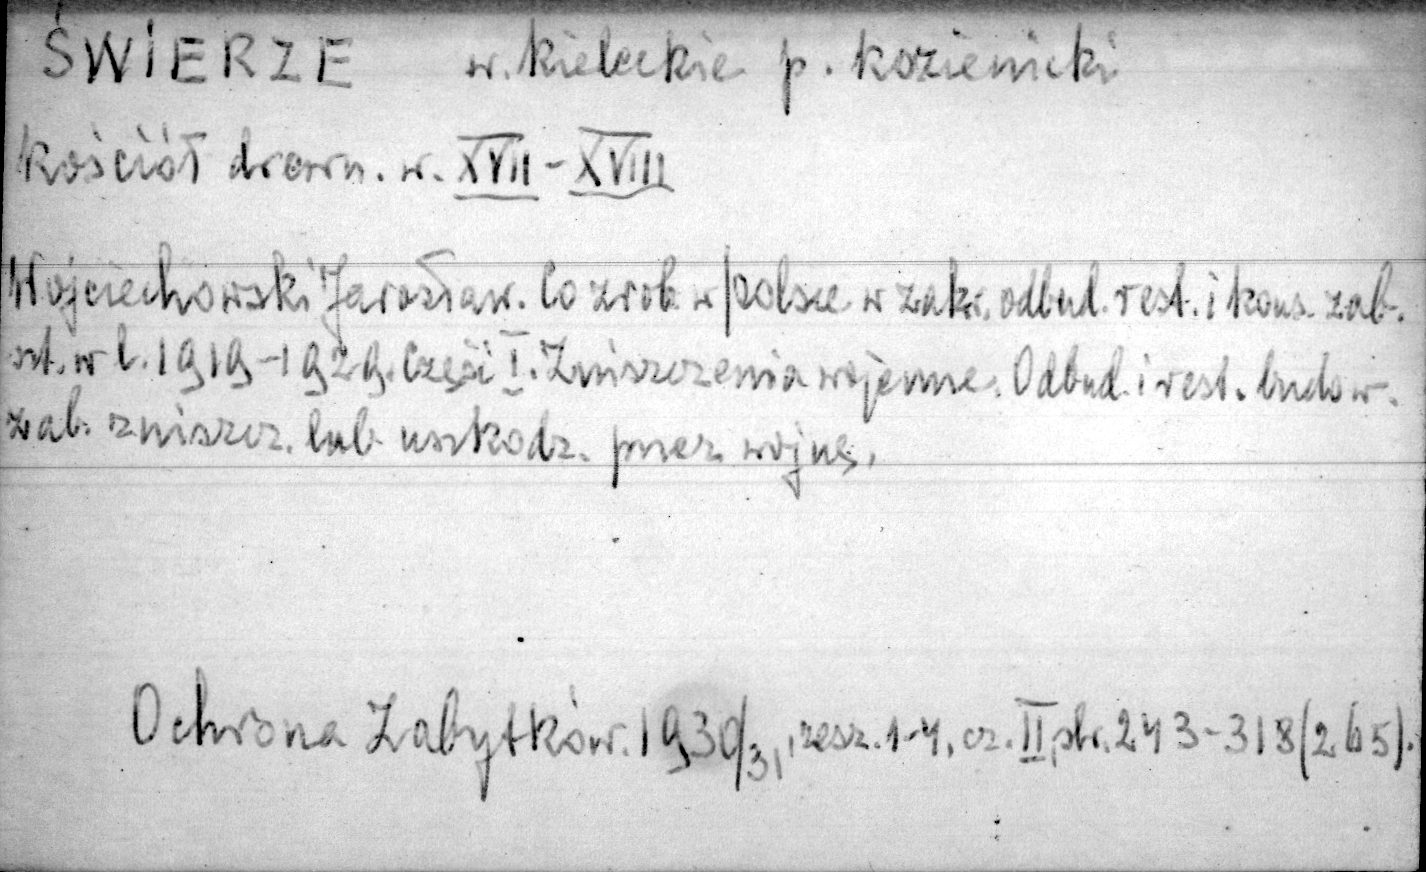 ŚWIERZE w. kieleckie p. kozienicki
Kościół drewn. w. XVII-XVIII
Wojciechowski Jarosław. Co zrob. w Polsce w zakr. odbud. rest. i kons. zab.
szt. w l. 1919-1929. Część I. Zniszczenia wojenne. Odbud. i rest. budow.
zab. zniszcz. lub uszkodz. przez wojnę.
Ochrona Zabytków. 1930/31, zesz. 1-4, cz. II str. 243-318 (265).